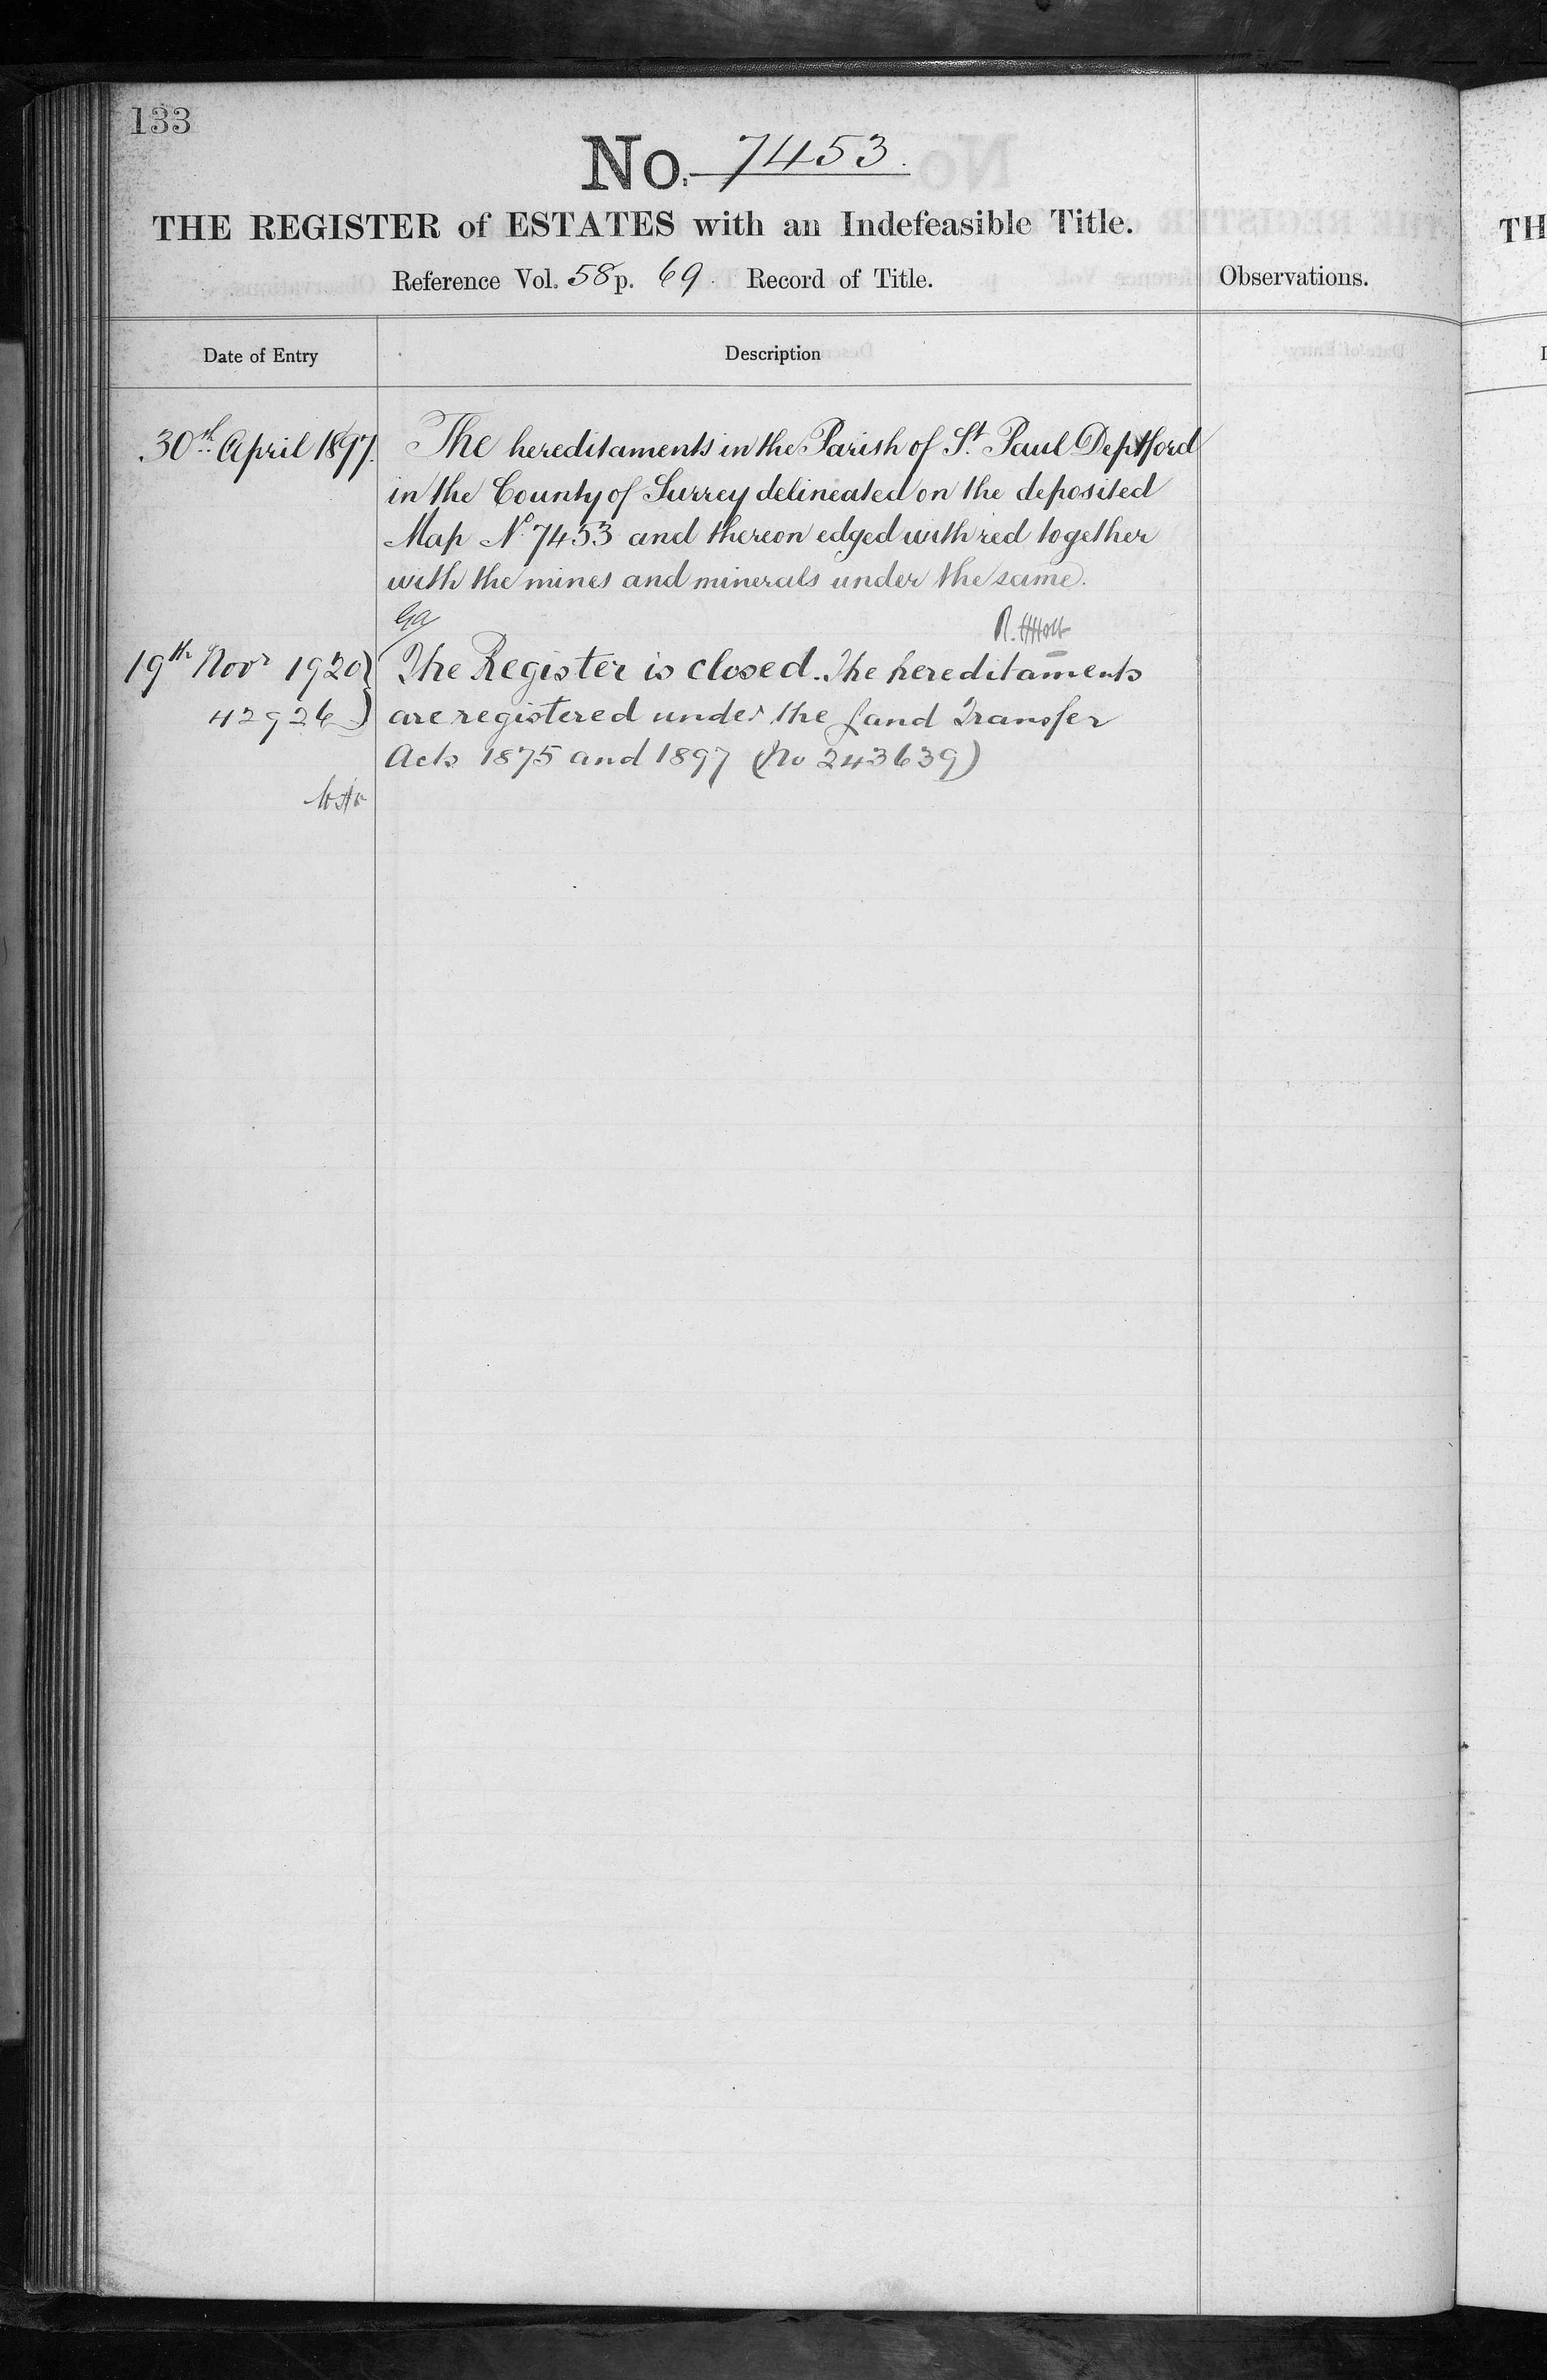 133
No. 7453.
THE REGISTER of ESTATES with an Indefeasible Title.
Reference Vol. 58 p. 69. Record of Title.
Observations.
Date of Entry
Description
30th. April 1897.
The hereditaments in the Parish of St. Paul Deptford
in the County of Surrey delineated on the deposited
Map No. 7453 and thereon edged with red together
with the mines and minerals under the same.
R. H Holt
19th Novr 1920 }
The Register is closed. The hereditaments
42926 }
are registered under the Land Transfer
Acts 1875 and 1897 (No 243639)
TH